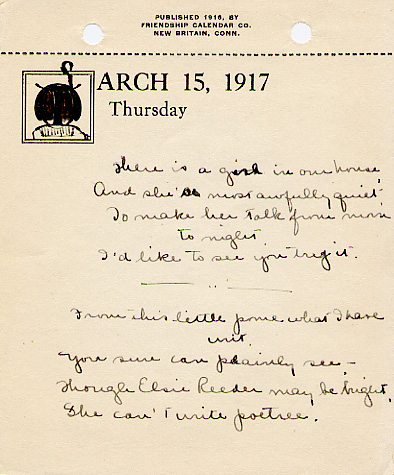 PUBLISHED 1916, BY
FRIENDSHIP CALENDAR CO.
NEW BRITAIN, CONN.
MARCH 15, 1917
Thursday
There is a girl in our house
And she's most awfully quiet
To make her talk from morn
to night,
I'd like to see you try it.
From this little pome what I have
writ,
You sure can plainly see –
Though Elsie Reeder may be bright,
She can't write poetree.